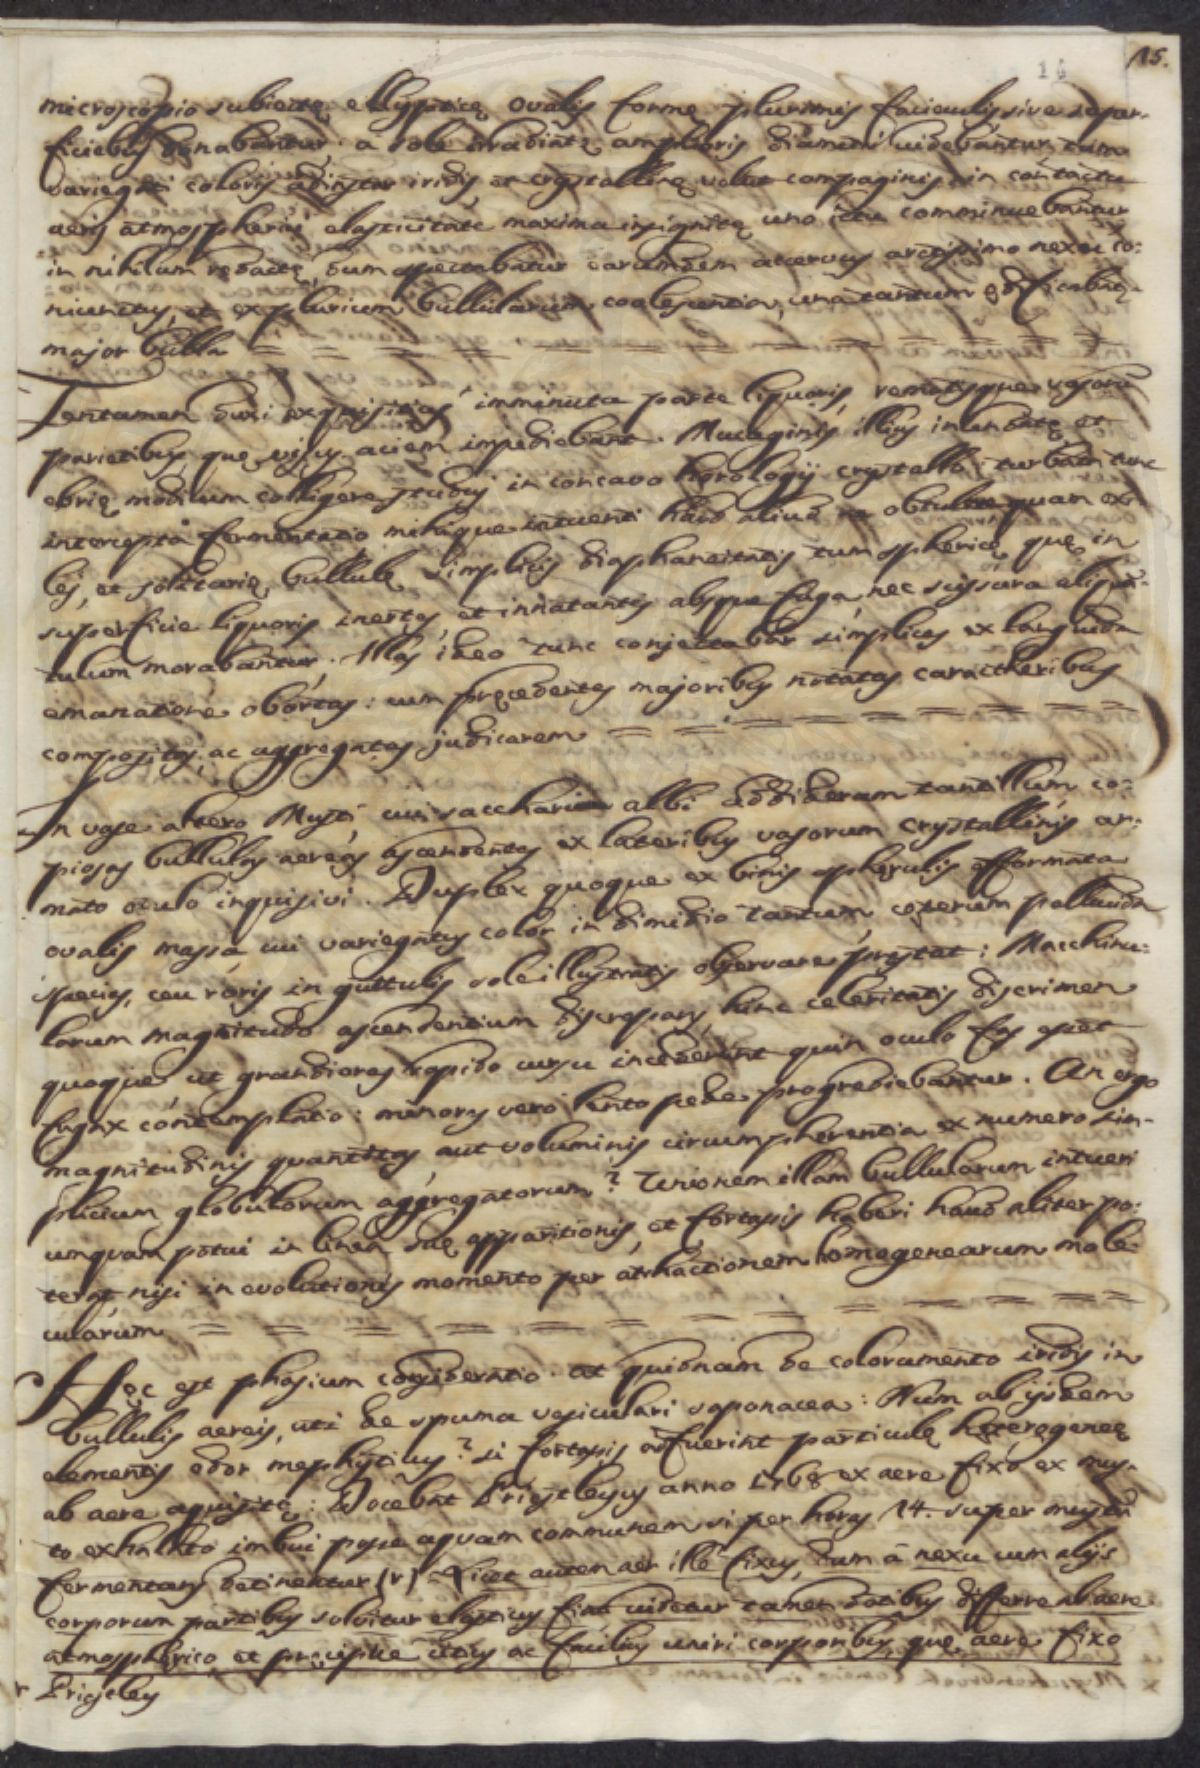 16 15.
microscopio subiectę ellypticę ovalis formę plurimis facieculis sive super-
ficiebus donabantur. a sole irradiatę amplioris diametri videbantur, tum
variegati coloris ad instar iridis et crystallinę velut compaginis, in contactu
aeris atmospherici elasticitate maxima insignitę uno ictu comminuebantur
in nihilum redactę, dum spectabatur earumdem acervus arctissimo nexu co-
niunctus, et ex plurium bullularum coalescentia, una tantum
major bulla = = = = = = = = = = =
Tentamen duxi exquisitius imminuta parte liquoris, remotisque vasorum
parietibus, quę visus aciem impediebant. Mucaginis illius intensatę et
ebrię modicum colligere studui in concavo horologij crystallo; turbata tunc
intercepta fermentatio mihique intuenti haud aliud se obtulit quam exi-
les, et solitarię bullulę simplicis diaphaneitatis tum sphericę, quę in
superficie liquoris inertes, et innatantes absque fuga, nec scissura aliquan-
tulum morabantur. Illas ideo tunc conjectabar simplices ex languida
emanatione obortas: cum pręcedentes majoribus notatas caractheribus
compositas, ac aggregatas judicarem = = = = = = = = =
In vase altero Musti cui sacchari albi addideram tantillum, co-
piosas bullulas aereas ascendentes ex lateribus vasorum crystallinis ar-
mato oculo inquisivi. Duplex quoque ex binis spherulis efformata
ovalis massa cui variegatus color in dimidio tantum, coeterum pellucida
species, ceu roris in guttulis sole illustratis observare prestat: Macchinu-
larum magnitudo ascendentium discrepans, hinc celeritatis discrimen
quoque ut grandiores rapido cursu incederint quin oculo fas esset
fugax contemplatio: minores vero lento pede progrediebantur. An ergo
magnitudinis quantitas aut voluminis circumpherentia ex numero sim-
plicium globulorum aggregatorum? Unionem illam bullularum intueri
umquam potui in linea suę apparitionis, et fortassis haberi haud aliter po-
terat nisi in evolutionis momento per attractionem homogenearum mole-
cularum = = = = = = = = = = = = =
Hęc est phasium consideratio. at quidnam de coloramento iridis in
bullulis aereis, uti de spuma vesiculari saponacea: Num ab ijsdem
elementis odor mephyticus? si fortassis adfuerint particulę heterogeneę
ab aere aquisitę: Docebat Priestleyus anno 1768 ex aere fixo ex mus-
to exhalato imbui posse aquam communem si per horas 14. super mustum
fermentans detineatur (r) Licet autem aer ille fixus, dum a nexu cum alijs
corporum partibus solvitur elasticus fiat videtur tamen dotibus differre ab aere
atmospherico, et pręcipue citius ac facilius uniri corporibus, quę aere fixo
r Priestley